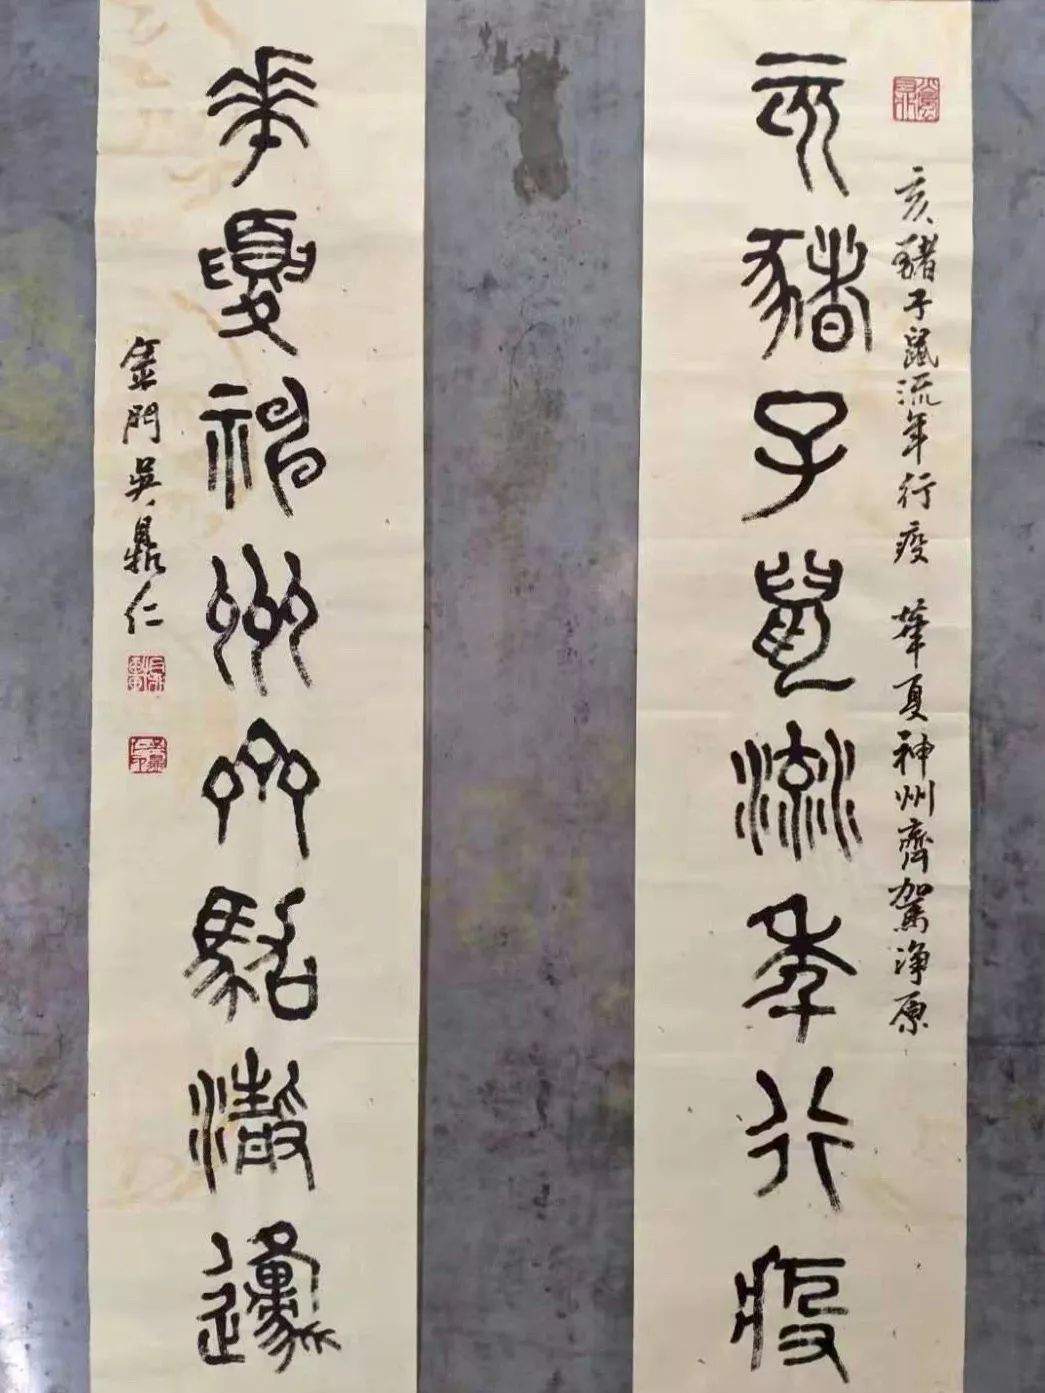 亥豬子鼠流年行疫 華夏神州齊駕淨原
亥豬子鼠流年行疫
華夏神州齊駕
金門吳鼎仁